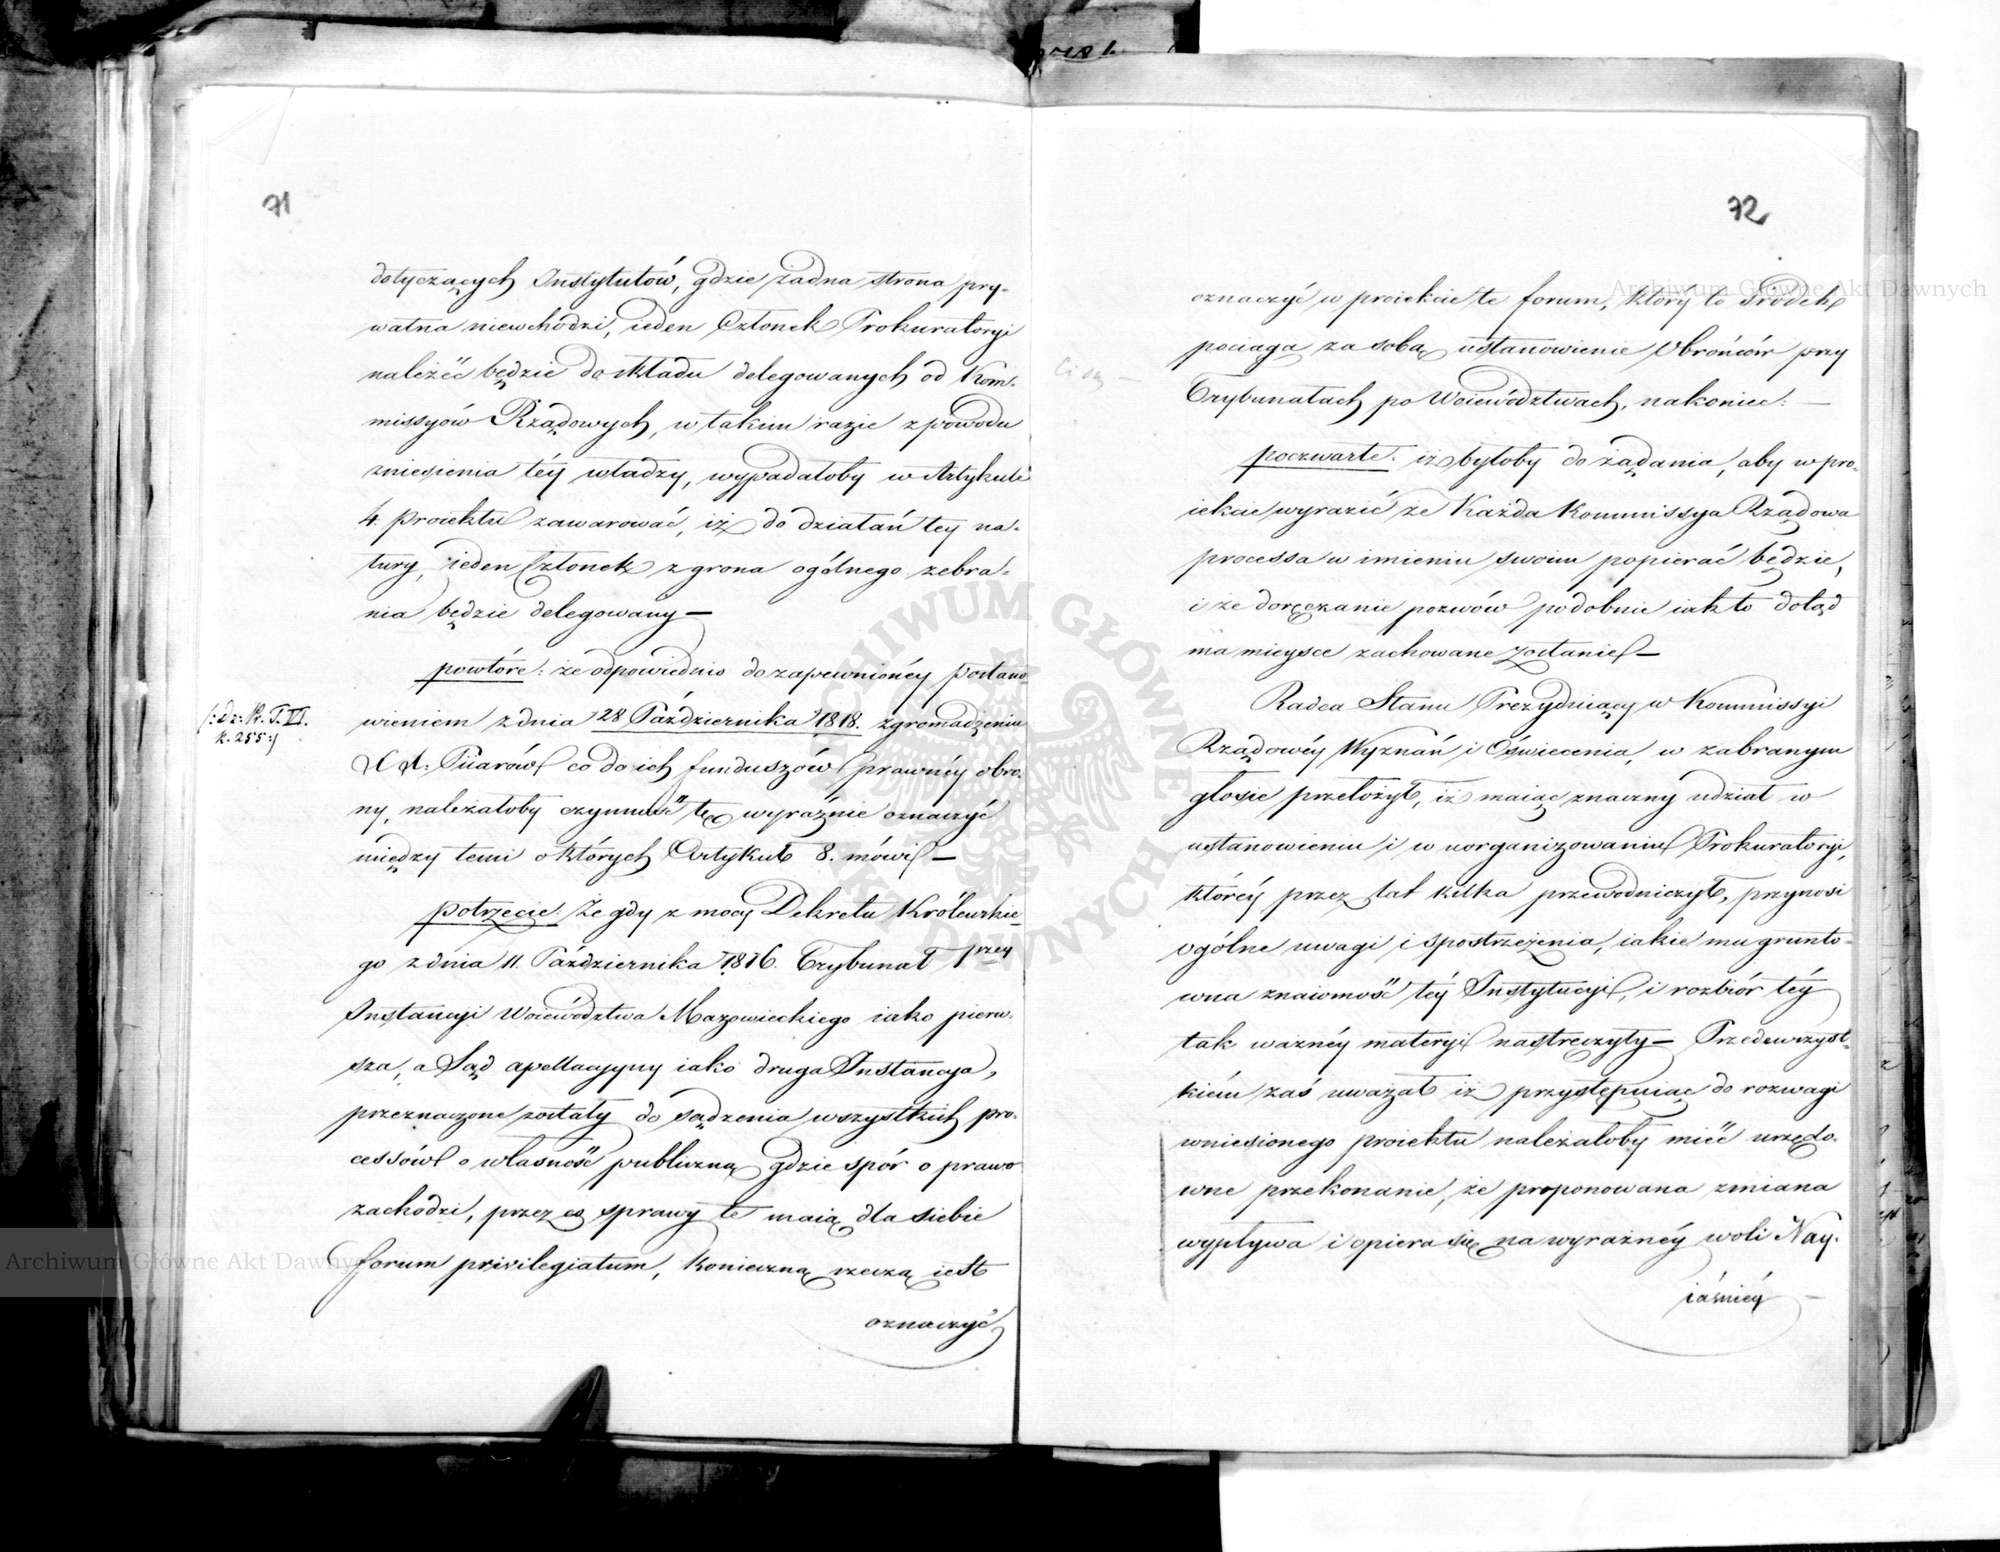 71
dotyczących Instytutów, gdzie żadna strona pry-
watna niewchodzi, ieden Członek Prokuratoryi
należeć będzie do składu delegowanych od Kom-
missyów Rządowych, w takim razie z powodu
zniesienia téy władzy, wypadałoby w Artykule
4. proiektu zawarować, iż do działań tey na-
tury, ieden Członek z grona ogólnego zebra-
nia będzie delegowany —
powtóre: że odpowiednio do zapewnionéy postano-
wieniem z dnia 28 Października 1818. zgromadzeniu
/: Dz: Pr. T. VI.
k. 255 :/
XX: Piiarów co do ich funduszów prawnéy obro-
ny, należałoby czynność tę wyraźnie oznaczyć
między temi o których Artykuł 8. mówi —
potrzecie: Że gdy z mocy Dekretu Królewskie-
go z dnia 11. Października 1816. Trybunał 1wszey
Instancyi Woiewództwa Mazowieckiego iako pierw-
sza, a Sąd apellacyyny iako druga Instancya,
przeznaczone zostały do sądzenia wszystkich pro-
cessów o własność publiczną gdzie spór o prawo
zachodzi, przez co sprawy te maią dla siebie
forum privilegiatum, konieczną rzeczą iest
oznaczyć
72
oznaczyć w proiekcie te forum, który to środek
pociąga za sobą ustanowienie Obrońców przy
Trybunałach po Woiewództwach, nakoniec: —
poczwarte: iż byłoby do żądania, aby w pro-
iekcie wyrazić że Każda Kommissya Rządowa
processa w imieniu swoim popierać będzie,
i że doręczanie pozwów podobnie iak to dotąd
ma mieysce zachowane zostanie —
Radca Stanu Prezyduiący w Kommissyi
Rządowéy Wyznań i Oświecenia, w zabranym
głosie przełożył, iż maiąc znaczny udział w
ustanowieniu i w uorganizowaniu Prokuratoryi,
któréy przez lat kilka przewodniczył, przynosi
ogólne uwagi i spostrzeżenia, iakie mu grunto-
wna znaiomość téy Instytucyi, i rozbiór téy
tak ważnéy materyi nastręczyły — Przedewszyst-
kiém zaś uważał iż przystępuiąc do rozwagi
wniesionego proiektu należałoby mieć urzędo-
wne przekonanie, że proponowana zmiana
wypływa i opiera się na wyraźnéy woli Nay-
iáśniéy —
Archiwum Główne Akt Dawnych
Archiwum Główne Akt Dawnych
Archiwum Główne Akt Dawnych
ARCHIWUM GŁÓWNE AKT DAWNYCH